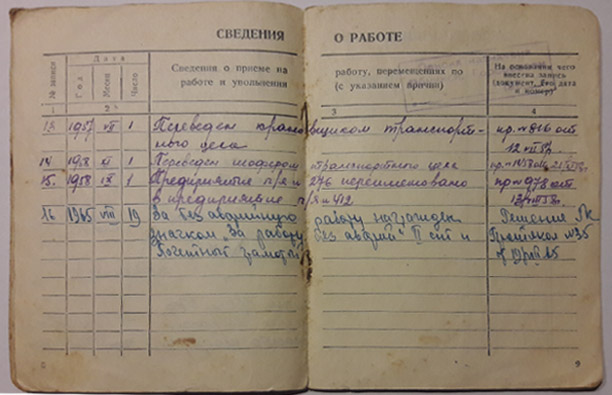 СВЕДЕНИЯ О РАБОТЕ
№ записи
Дата
Год
Месяц
Число
Сведения о приеме на работу, перемещениях по
работе и увольнении (с указанием причин)
На основании чего
внесена запись
(документ, его дата
и номер)
1 2 3 4
13 1957 VII 1 Переведен крановщиком транспорт- пр. №816 от
ного цеха 12 VII 57.
14 1958 1 Переведен шофером транспортного цеха
15. 1958 IX 1 Предприятие п/я 276 переименовано пр №978 от
в предприятие п/я 412
16 1965 VIII 19 За безаварийную работу награжден Решение
значком „За работу без аварий" II ст и №35
Почетный грамотой от 19/VIII 65
9